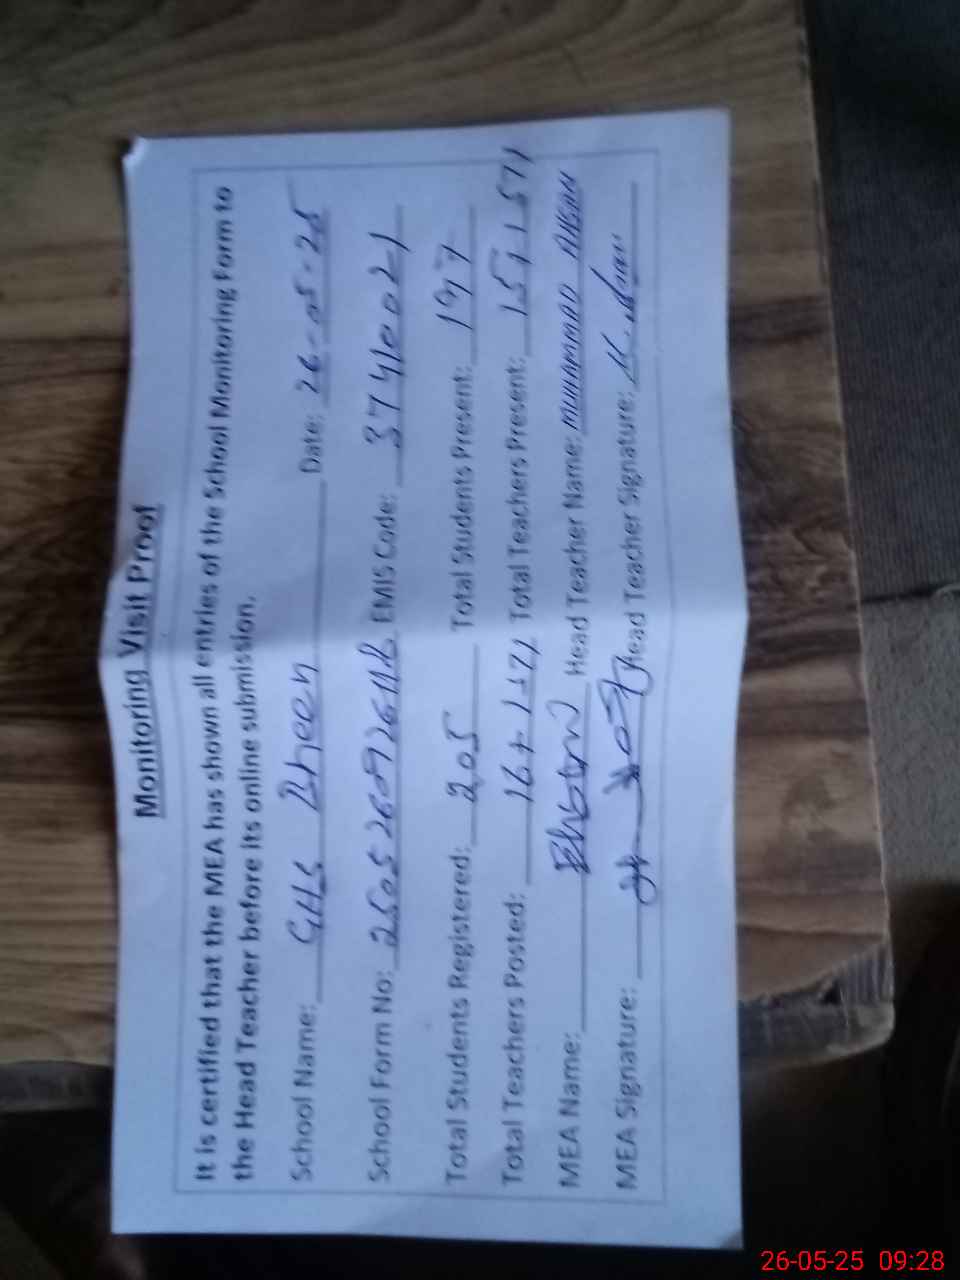 Monitoring Visit Proof
It is certified that the MEA has shown all entries of the School Monitoring Form to
the Head Teacher before its online submission.
School Name: GHS Bheen Date: 26-05-25
School Form No: EMIS Code: 37410021
Total Students Registered: 205 Total Students Present: 197
Total Teachers Posted: Total Teachers Present:
MEA Name: Head Teacher Name: MUHAMMAD
MEA Signature: Head Teacher Signature:
26-05-25 09:28